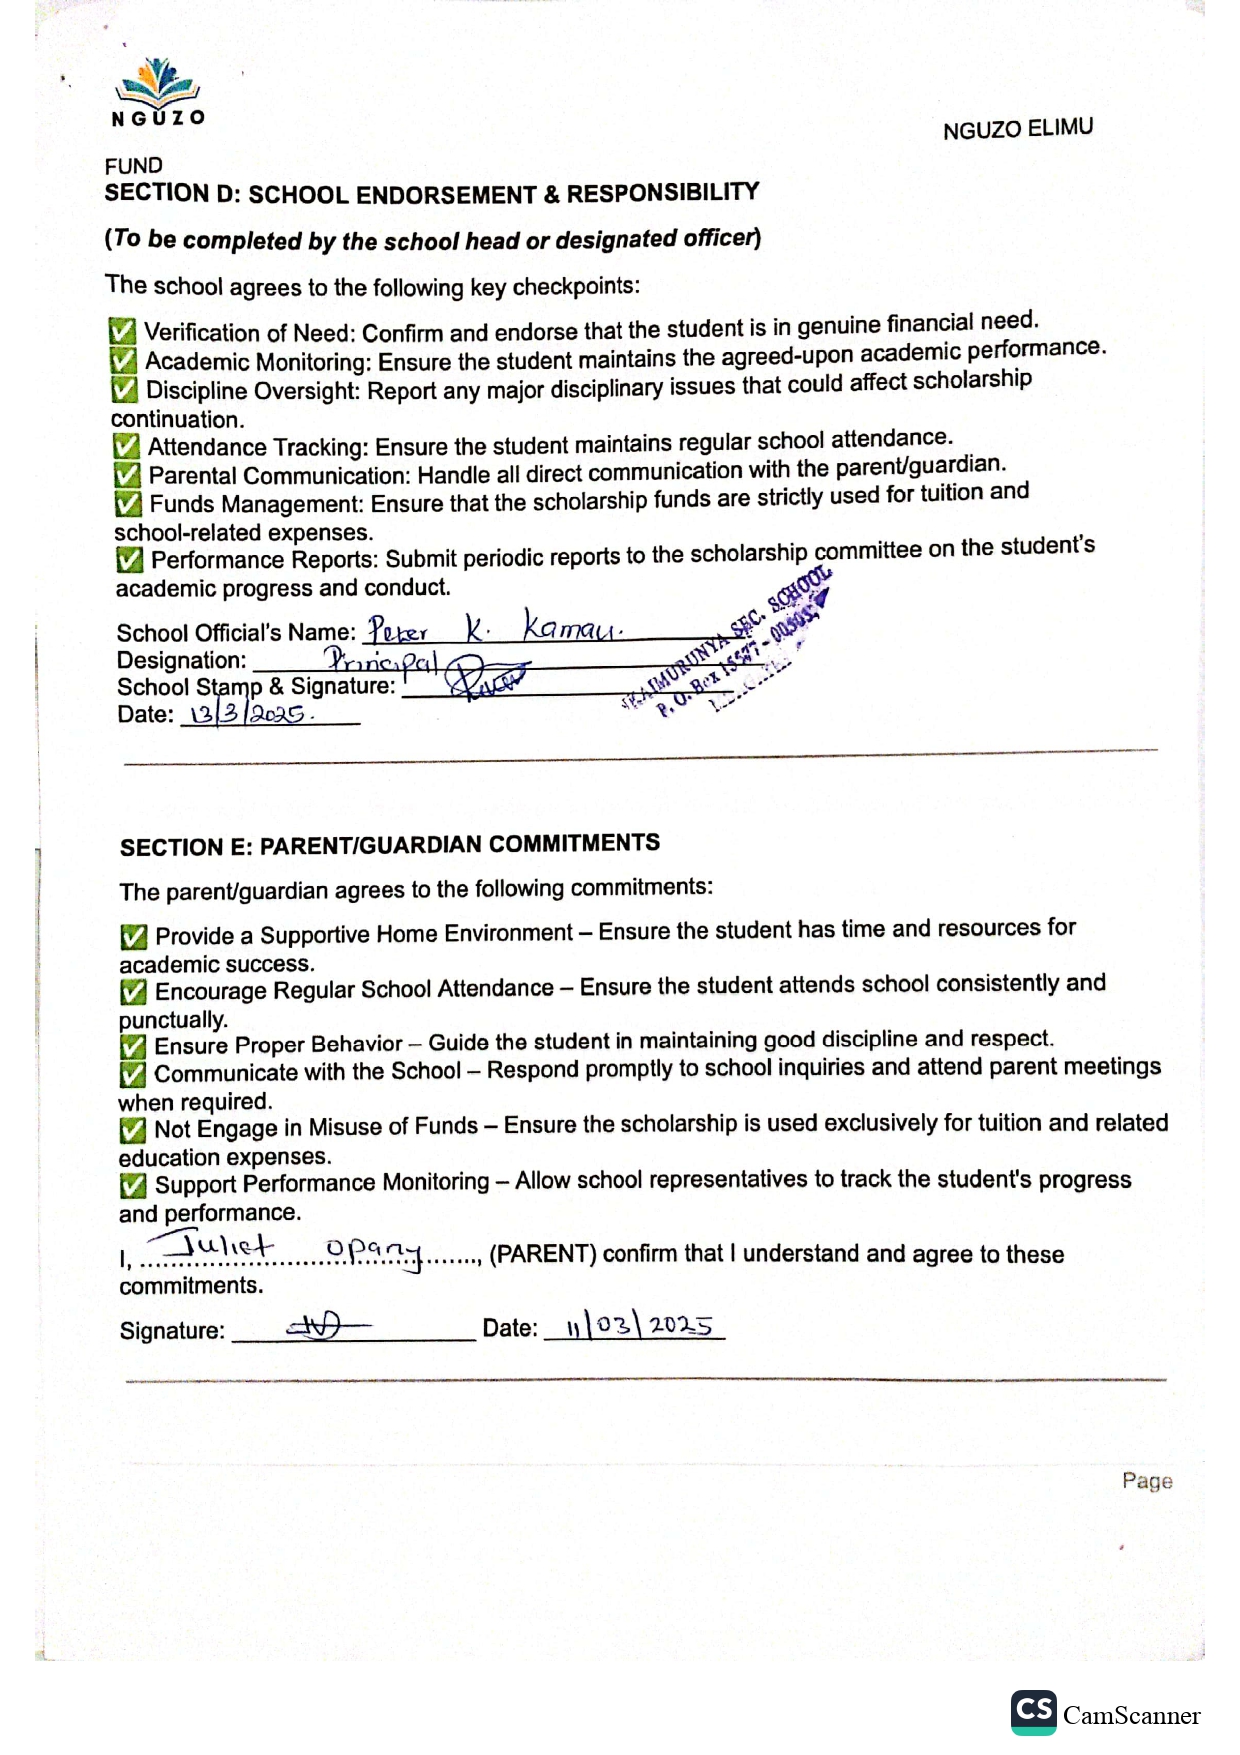 NGUZO
NGUZO ELIMU
FUND
SECTION D: SCHOOL ENDORSEMENT & RESPONSIBILITY
(To be completed by the school head or designated officer)
The school agrees to the following key checkpoints:
✅ Verification of Need: Confirm and endorse that the student is in genuine financial need.
✅ Academic Monitoring: Ensure the student maintains the agreed-upon academic performance.
✅ Discipline Oversight: Report any major disciplinary issues that could affect scholarship
continuation.
✅ Attendance Tracking: Ensure the student maintains regular school attendance.
✅ Parental Communication: Handle all direct communication with the parent/guardian.
✅ Funds Management: Ensure that the scholarship funds are strictly used for tuition and
school-related expenses.
✅ Performance Reports: Submit periodic reports to the scholarship committee on the student's
academic progress and conduct.
School Official's Name: Peter K. Kamau.
Designation: Principal
School Stamp & Signature:
SEC. SCHOOL
P. O. Box
Date: 13/3/2025.
SECTION E: PARENT/GUARDIAN COMMITMENTS
The parent/guardian agrees to the following commitments:
✅ Provide a Supportive Home Environment – Ensure the student has time and resources for
academic success.
✅ Encourage Regular School Attendance – Ensure the student attends school consistently and
punctually.
✅ Ensure Proper Behavior – Guide the student in maintaining good discipline and respect.
✅ Communicate with the School – Respond promptly to school inquiries and attend parent meetings
when required.
✅ Not Engage in Misuse of Funds – Ensure the scholarship is used exclusively for tuition and related
education expenses.
✅ Support Performance Monitoring – Allow school representatives to track the student's progress
and performance.
I, Juliet Opany, (PARENT) confirm that I understand and agree to these
commitments.
Signature: Date: 11/03/2025
Page
CS CamScanner